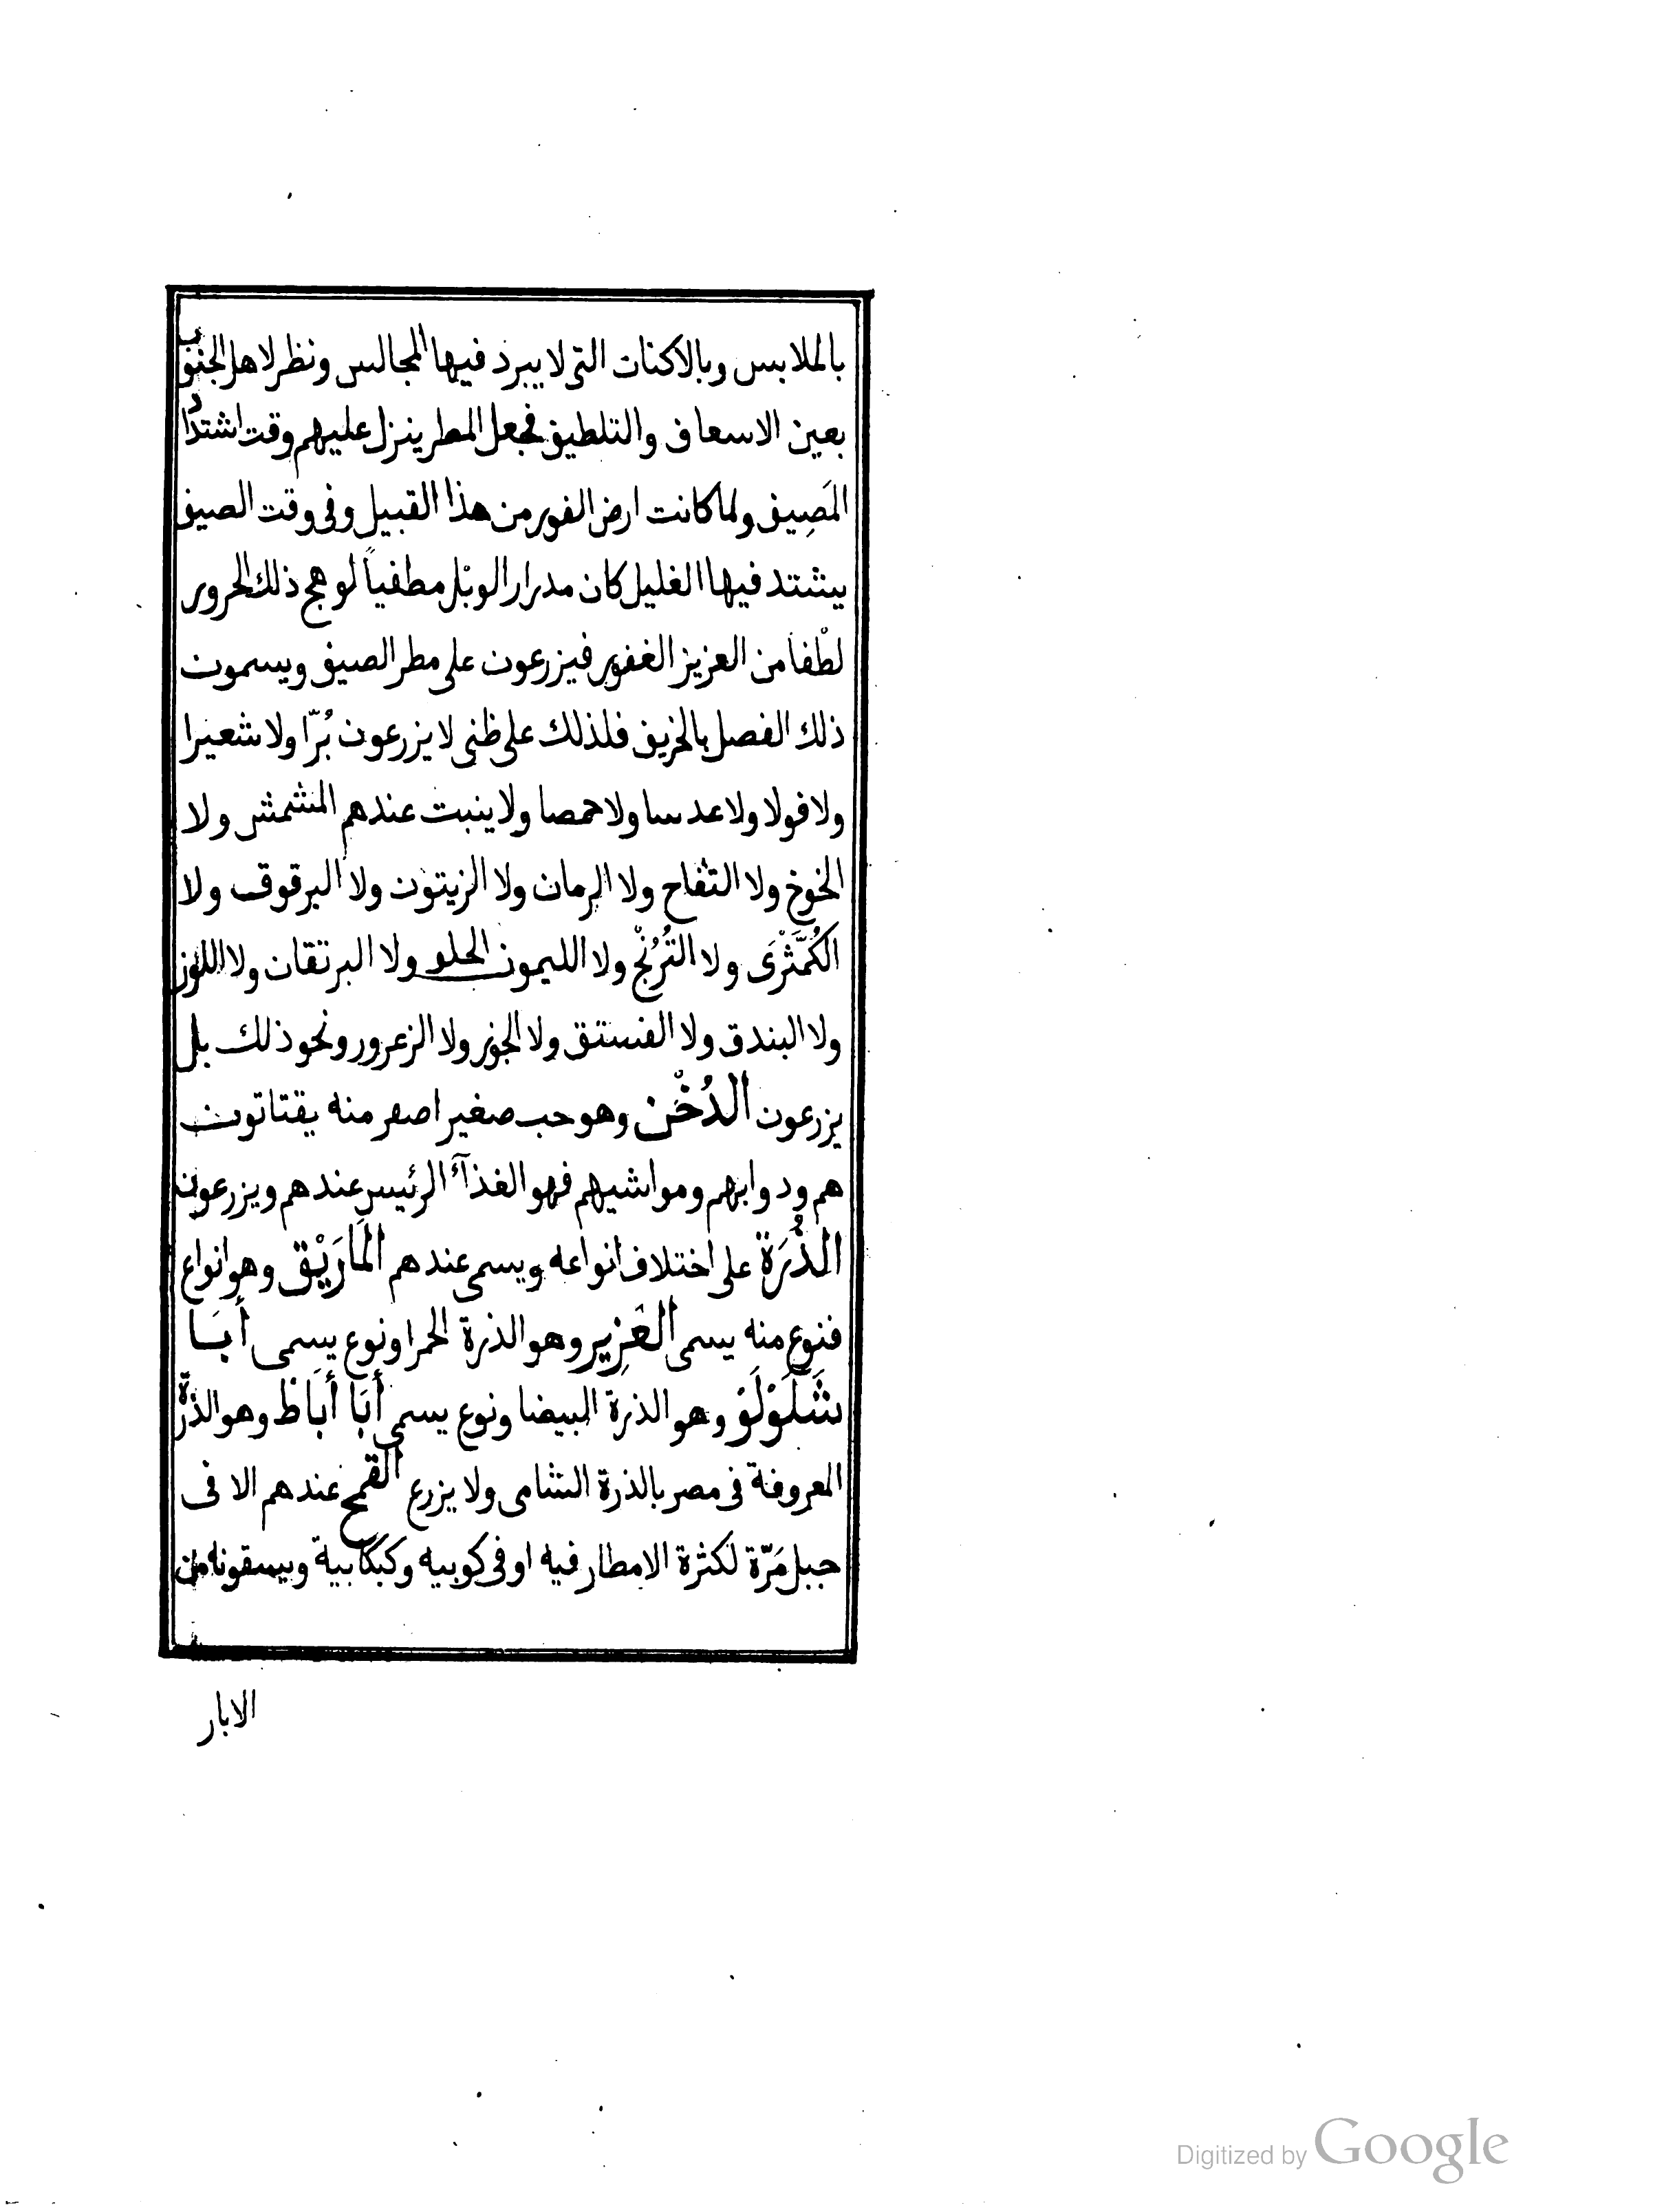 بالملابس وبالاكنات التى لا يبرد فيها المجالس ونظر لاهل الجنوب
بعين الاسعاف والتلطيف فجعل المطر ينزل عليهم وقت اشتداد
المَصِيف ولما كانت ارض الفور من هذا القبيل وفى وقت الصيف
يشتد فيها الغليل كان مدرار الوبْل مطفياً لوهج ذلك الحرور
لطْفا من العزيز الغفور فيزرعون على مطر الصيف ويسمون
ذلك الفصل بالخريف فلذلك على ظنى لا يزرعون بُرّا ولا شعيرا
ولا فولا ولا عدسا ولا حمصا ولا ينبت عندهم المشمش ولا
الخوخ ولا التفاح ولا الرمان ولا الزيتون ولا البرقوق ولا
الكُمَّثْرَى ولا التُرُنْج ولا الليمون الحلو ولا البرتقان ولا اللوز
ولا البندق ولا الفستق ولا الجوز ولا الزعرور ونحو ذلك بل
يزرعون الدُخْن وهو حب صغير اصفر منه يقتاتون
هم ودوابهم ومواشيهم فهو الغذآء الرئيس عندهم ويزرعون
الذُرَة على اختلاف انواعه ويسمى عندهم المَارَيْق وهو انواع
فنوع منه يسمى العَزِير وهو الذرة الحمرا ونوع يسمى أَبَا
شَلَوْلَوْ وهو الذرة البيضا ونوع يسمى أَبَا أَبَاظ وهو الذرّة
المعروفة فى مصر بالذرة الشامى ولا يزرع القمح عندهم الا فى
جبل مَرّة لكثرة الامطار فيه او فى كوبيه وكبكابية ويسقونه من
الابار
Digitized by Google